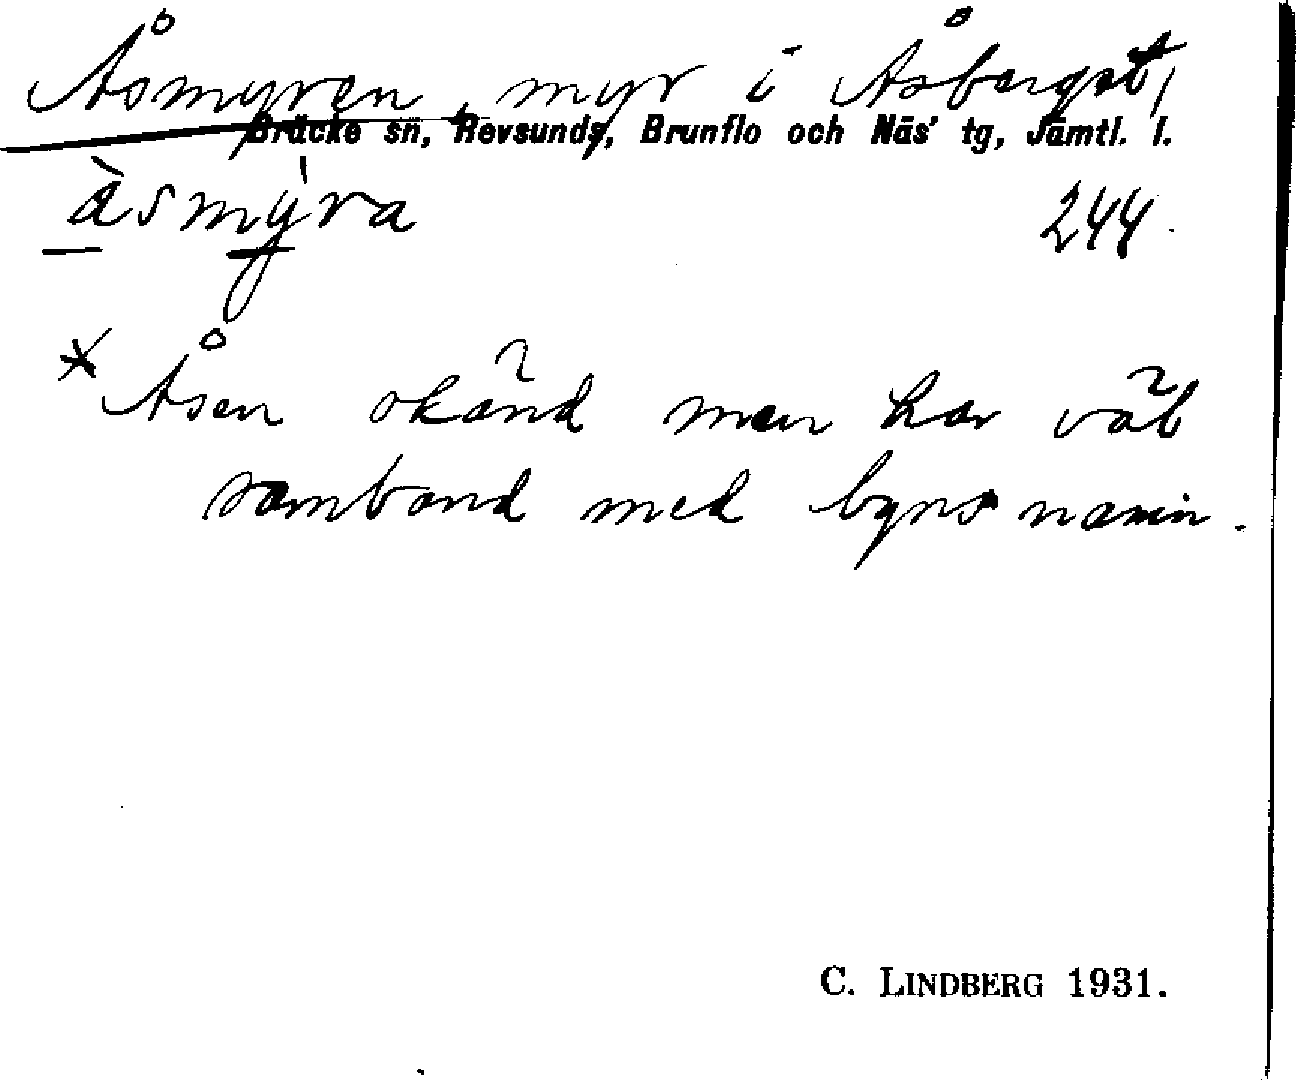 Åsmyren, myr i Åsberget,
Bräcke sn, Revsunds, Brunflo och Näs' tg, Jämtl. l.
àsmỳra 244.
* Åsen okänd men har väl
samband med byns namn.
C. LINDBERG 1931.